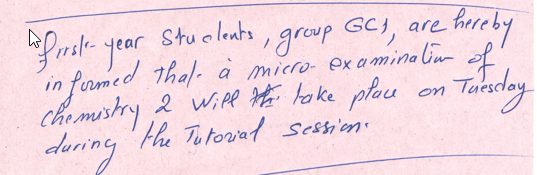 First-year students, group GC1, are hereby
informed that a micro-examination of
chemistry 2 will take place on Tuesday
during the Tutorial session.